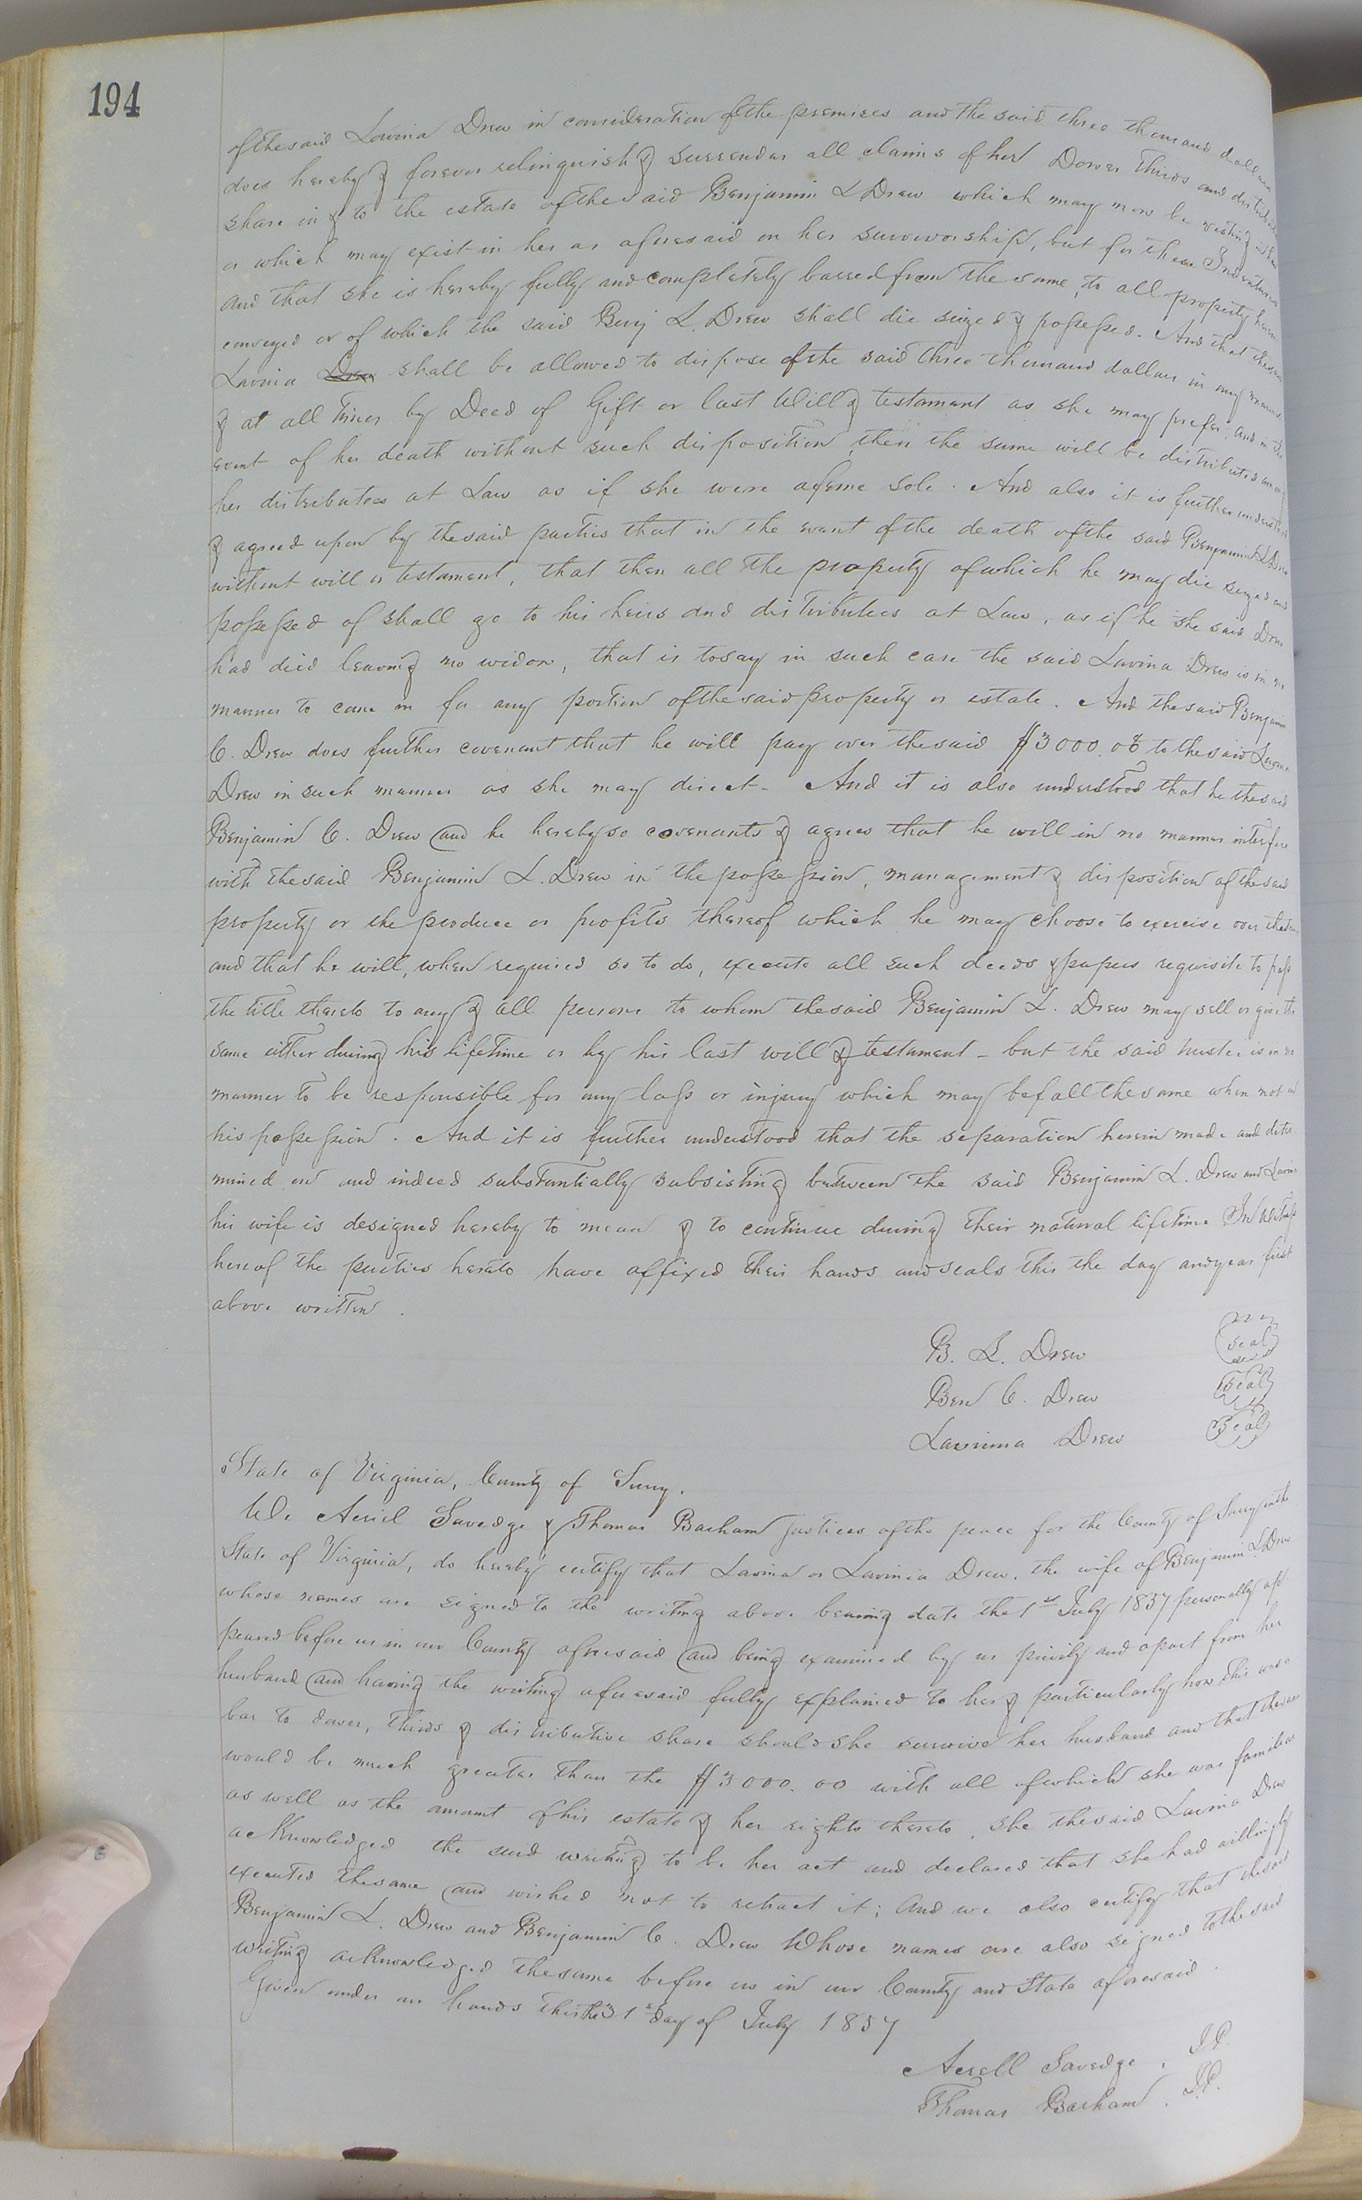 194
of the said Lavinia Drew in consideration of the premises and the said three thousand dollars
does hereby & forever relinquish & surrender all claims of her Dower Thirds and distributive
share in & to the estate of the said Benjamin L Drew which may now be vesting in her
or which may exist in her as aforesaid on her survivorship, but for these Indentures
and that she is hereby fully and completely barred from the same, to all property herein
conveyed or of which the said Benj L. Drew shall die seized & possessed. And that the said
Lavinia Drew shall be allowed to dispose of the said three thousand dollars in any manner
& at all times by Deed of Gift or last Will & testament as she may prefer, and in the
event of her death without such disposition, then the same will be distributed among
her distributees at Law as if she were a feme sole. And also it is further understood
& agreed upon by the said parties that in the event of the death of the said Benjamin L Drew
without will or testament, that then all the property of which he may die seized and
possessed of shall go to his heirs and distributees at Law, as if he the said Drew
had died leaving no widow, that is to say in such case the said Lavina Drew is in no
manner to come in for any portion of the said property or estate. And the said Benjamin
C. Drew does further covenant that he will pay over the said $3000.00 to the said Lavinia
Drew in such manner as she may direct - And it is also understood that he the said
Benjamin C. Drew and he hereby so covenants & agrees that he will in no manner interfere
with the said Benjamin L. Drew in the possession, management & disposition of the said
property or the produce or profits thereof which he may choose to exercise over the same
and that he will, when required so to do, execute all such deeds & papers requisite to pass
the title thereto to any & all persons to whom the said Benjamin L. Drew may sell or give the
same either during his lifetime or by his last will & testament - but the said trustee is in no
manner to be responsible for any loss or injury which may befall the same when not in
his possession. And it is further understood that the separation herein made and deter
mined on and indeed substantially subsisting between the said Benjamin L. Drew and Lavinia
his wife is designed hereby to mean & to continue during their natural lifetime In Witness
hereof the parties hereto have affixed their hands and seals this the day and year first
above written.
B. L. Drew seal
Ben C. Drew Seal
Lavinina Drew Seal
State of Virginia, County of Surry.
We Aeriel Savedge & Thomas Barham justices of the peace for the County of Surry in the
State of Virginia, do hereby certify that Lavina or Lavinia Drew, the wife of Benjamin L Drew
whose names are signed to the writing above bearing date the 1st July 1857 personally ap
peared before us in our County aforesaid and being examined by us privily and apart from her
husband and having the writing aforesaid fully explained to her & particularly how this was a
bar to dower, thirds & distributive share should she survive her husband and that the same
would be much greater than the $3000.00 with all of which she was familiar
as well as the amount of his estate & her rights thereto, she the said Lavinia Drew
acknowledged the said writing to be her act and declared that she had willingly
executed the same and wished not to retract it; And we also certify that the said
Benjamin L. Drew and Benjamin C. Drew whose names are also signed to the said
writing acknowledged the same before us in our County and State aforesaid.
Given under our hands this the 31st day of July 1857
Aerell Savedge, J.P.
Thomas Barham, J.P.